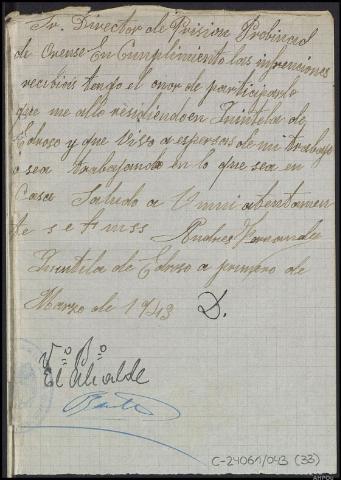 Sr. Director de Prision Probincal
de Orense En Cumplimiento las infrenciones
recibiis tengo el onor de participarle
que me allo residiendo en Quintela de
Edroso y que Vivo a espensas de mi trabajo
o sea trabajando en lo que sea en
Casa Saludo a Vmi atentamen
te s e t mss Andres Fernandez
Quintela de Edroso a primero de
Marzo de 1943 D.
Vº Bº
El Alcalde
C-24061/043 (33)
AHPOu